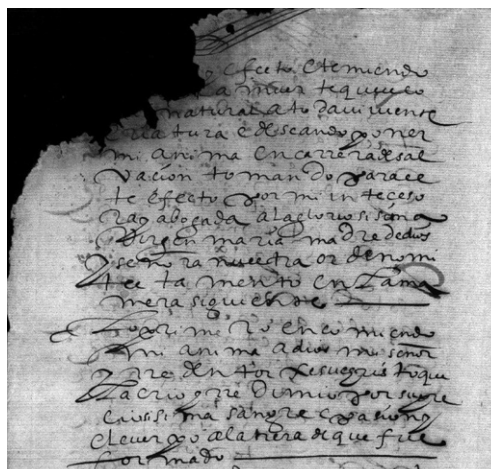 efecto e temiendo
la muerte que es
natural a toda viviente
criatura e deseando poner
mi anima en carrera de sal
vacion tomando para ce
te efecto por mi interceso
ra y abogada a la gloriosisima
Virgen maria madre de dios
y señora nuestra ordeno mi
testamento en la ma
nera siguiente
Lo primero encomiendo
mi anima a dios mi señor
y rredentor xesucristo que
la crio y rredimio por su pre
ciosisima sangre e pasion y
el cuerpo a la tierra de que fue
formado